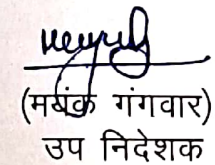 (मयंक गंगवार)
उप निदेशक